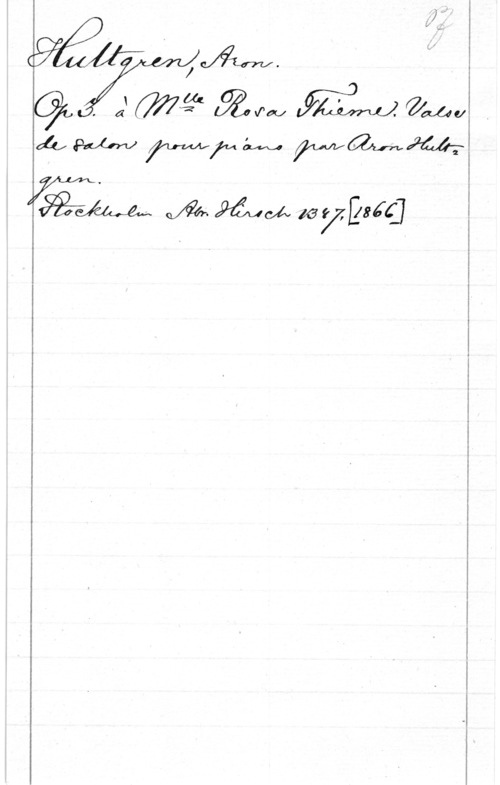 Pf
Hultgren, Aron.
Op. 3. à Mlle Rosa Thieme. Valse
de salon pour piano par Aron Hult=
gren.
Stockholm Abr. Hirsch 1347. [1866]